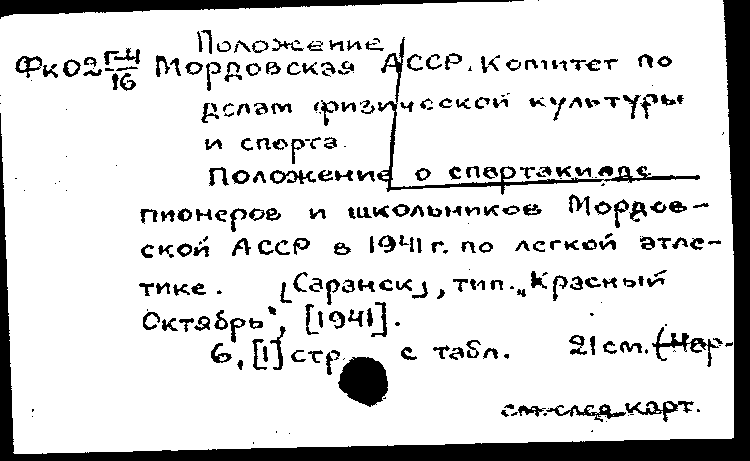 Положение
ФкО2 Г-4/16 Мордовская АССР. Комитет по
делам физической культуры
и спорта.
Положение о спартакиаде
пионеров и школьников Мордов-
ской АССР в 1941 г. по легкой атле-
тике. [Саранск], тип. „Красный
Октябрь", [1941].
6, [1] стр. с табл. 21 см. (Нар-
см. след карт.